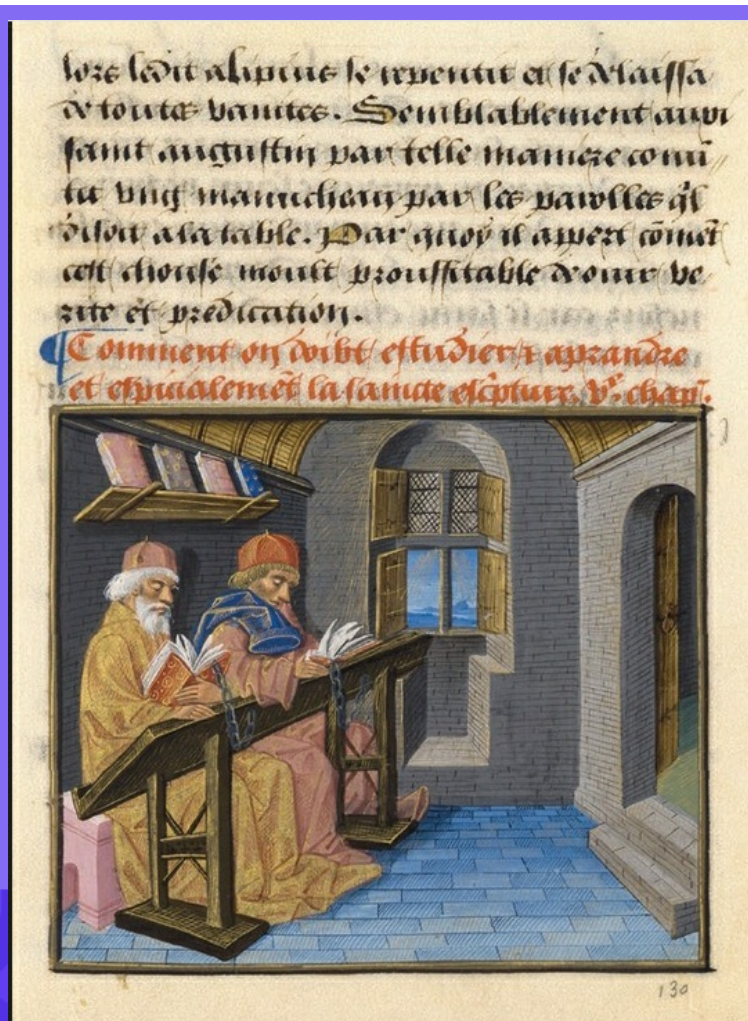 lors ledit alipius se repentit et se delaissa
de toutes vanites. Semblablement aussi
saint augustin par telle maniere con̄u
tit ung manicheen par les parolles q̄l
disoit a la table. Par quoy il appert cōmēt
cest chouse moult prouffitable douir ve
rite et predication.
Comment on doibt estudier et aprandre
et espicialemēt la saincte escripture. Ve. chap̄.
130